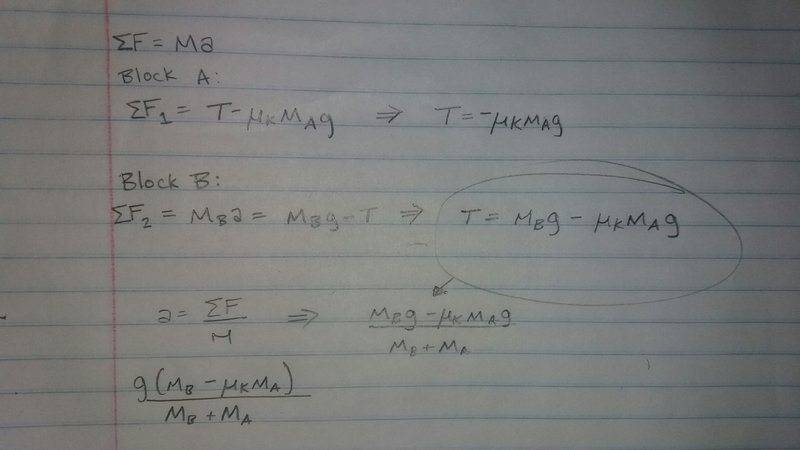 ΣF = Ma
Block A:
ΣF₁ = T - μₖm_Ag ⇒ T = -μₖm_Ag
Block B:
ΣF₂ = m_Ba = m_Bg - T ⇒ T = m_Bg - μₖm_Ag
a = ΣF/M ⇒ (m_Bg - μₖm_Ag)/(m_B + m_A)
g(m_B - μₖm_A)/(m_B + m_A)